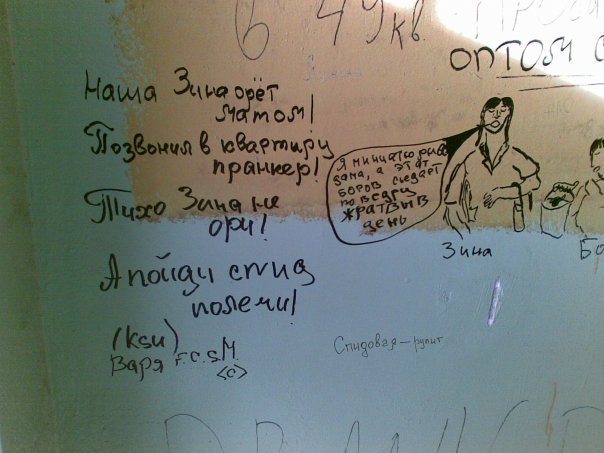 в 49 кв.
оптом с
Наша Зина орёт
матом!
Позвонил в квартиру
пранкер!
Тихо Зина не
ори!
А пойди спид
полечи!
(ksu)
Варя F.C.S.M.
<c>
Я миниатюрная
дама, а этот
боров съедает
по ведру
жратвы в
день
Зина
Бо
Спидовая — рулит